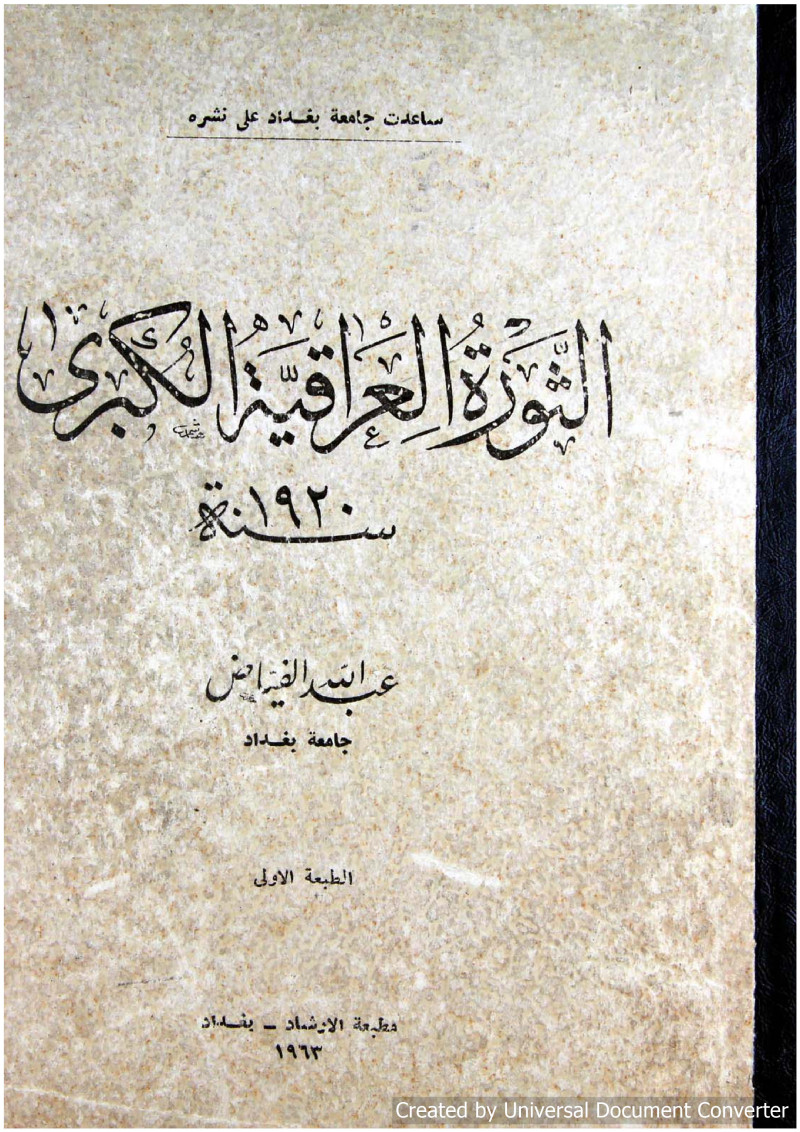 ساعدت جامعة بغداد على نشره
الثَّوْرَةُ العِرَاقِيَّةُ الكُبْرَى
سنة ١٩٢٠
عبد الله الفياض
جامعة بغداد
الطبعة الاولى
مطبعة الارشاد - بغداد
١٩٦٣
Created by Universal Document Converter